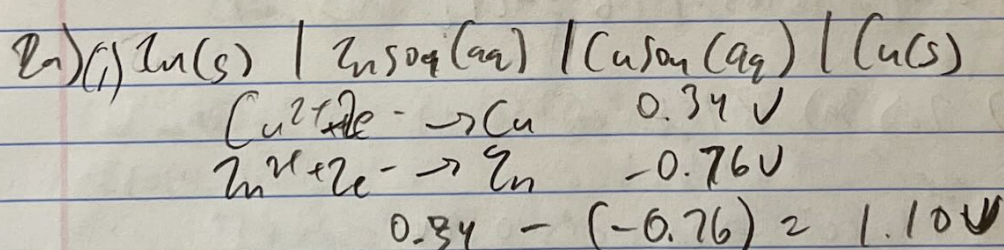 2a)(i) Zn(s) | ZnSO4(aq) | CuSO4(aq) | Cu(s)
Cu²⁺+2e⁻ → Cu 0.34 V
Zn²⁺+2e⁻ → Zn -0.76V
0.34 - (-0.76) = 1.10V